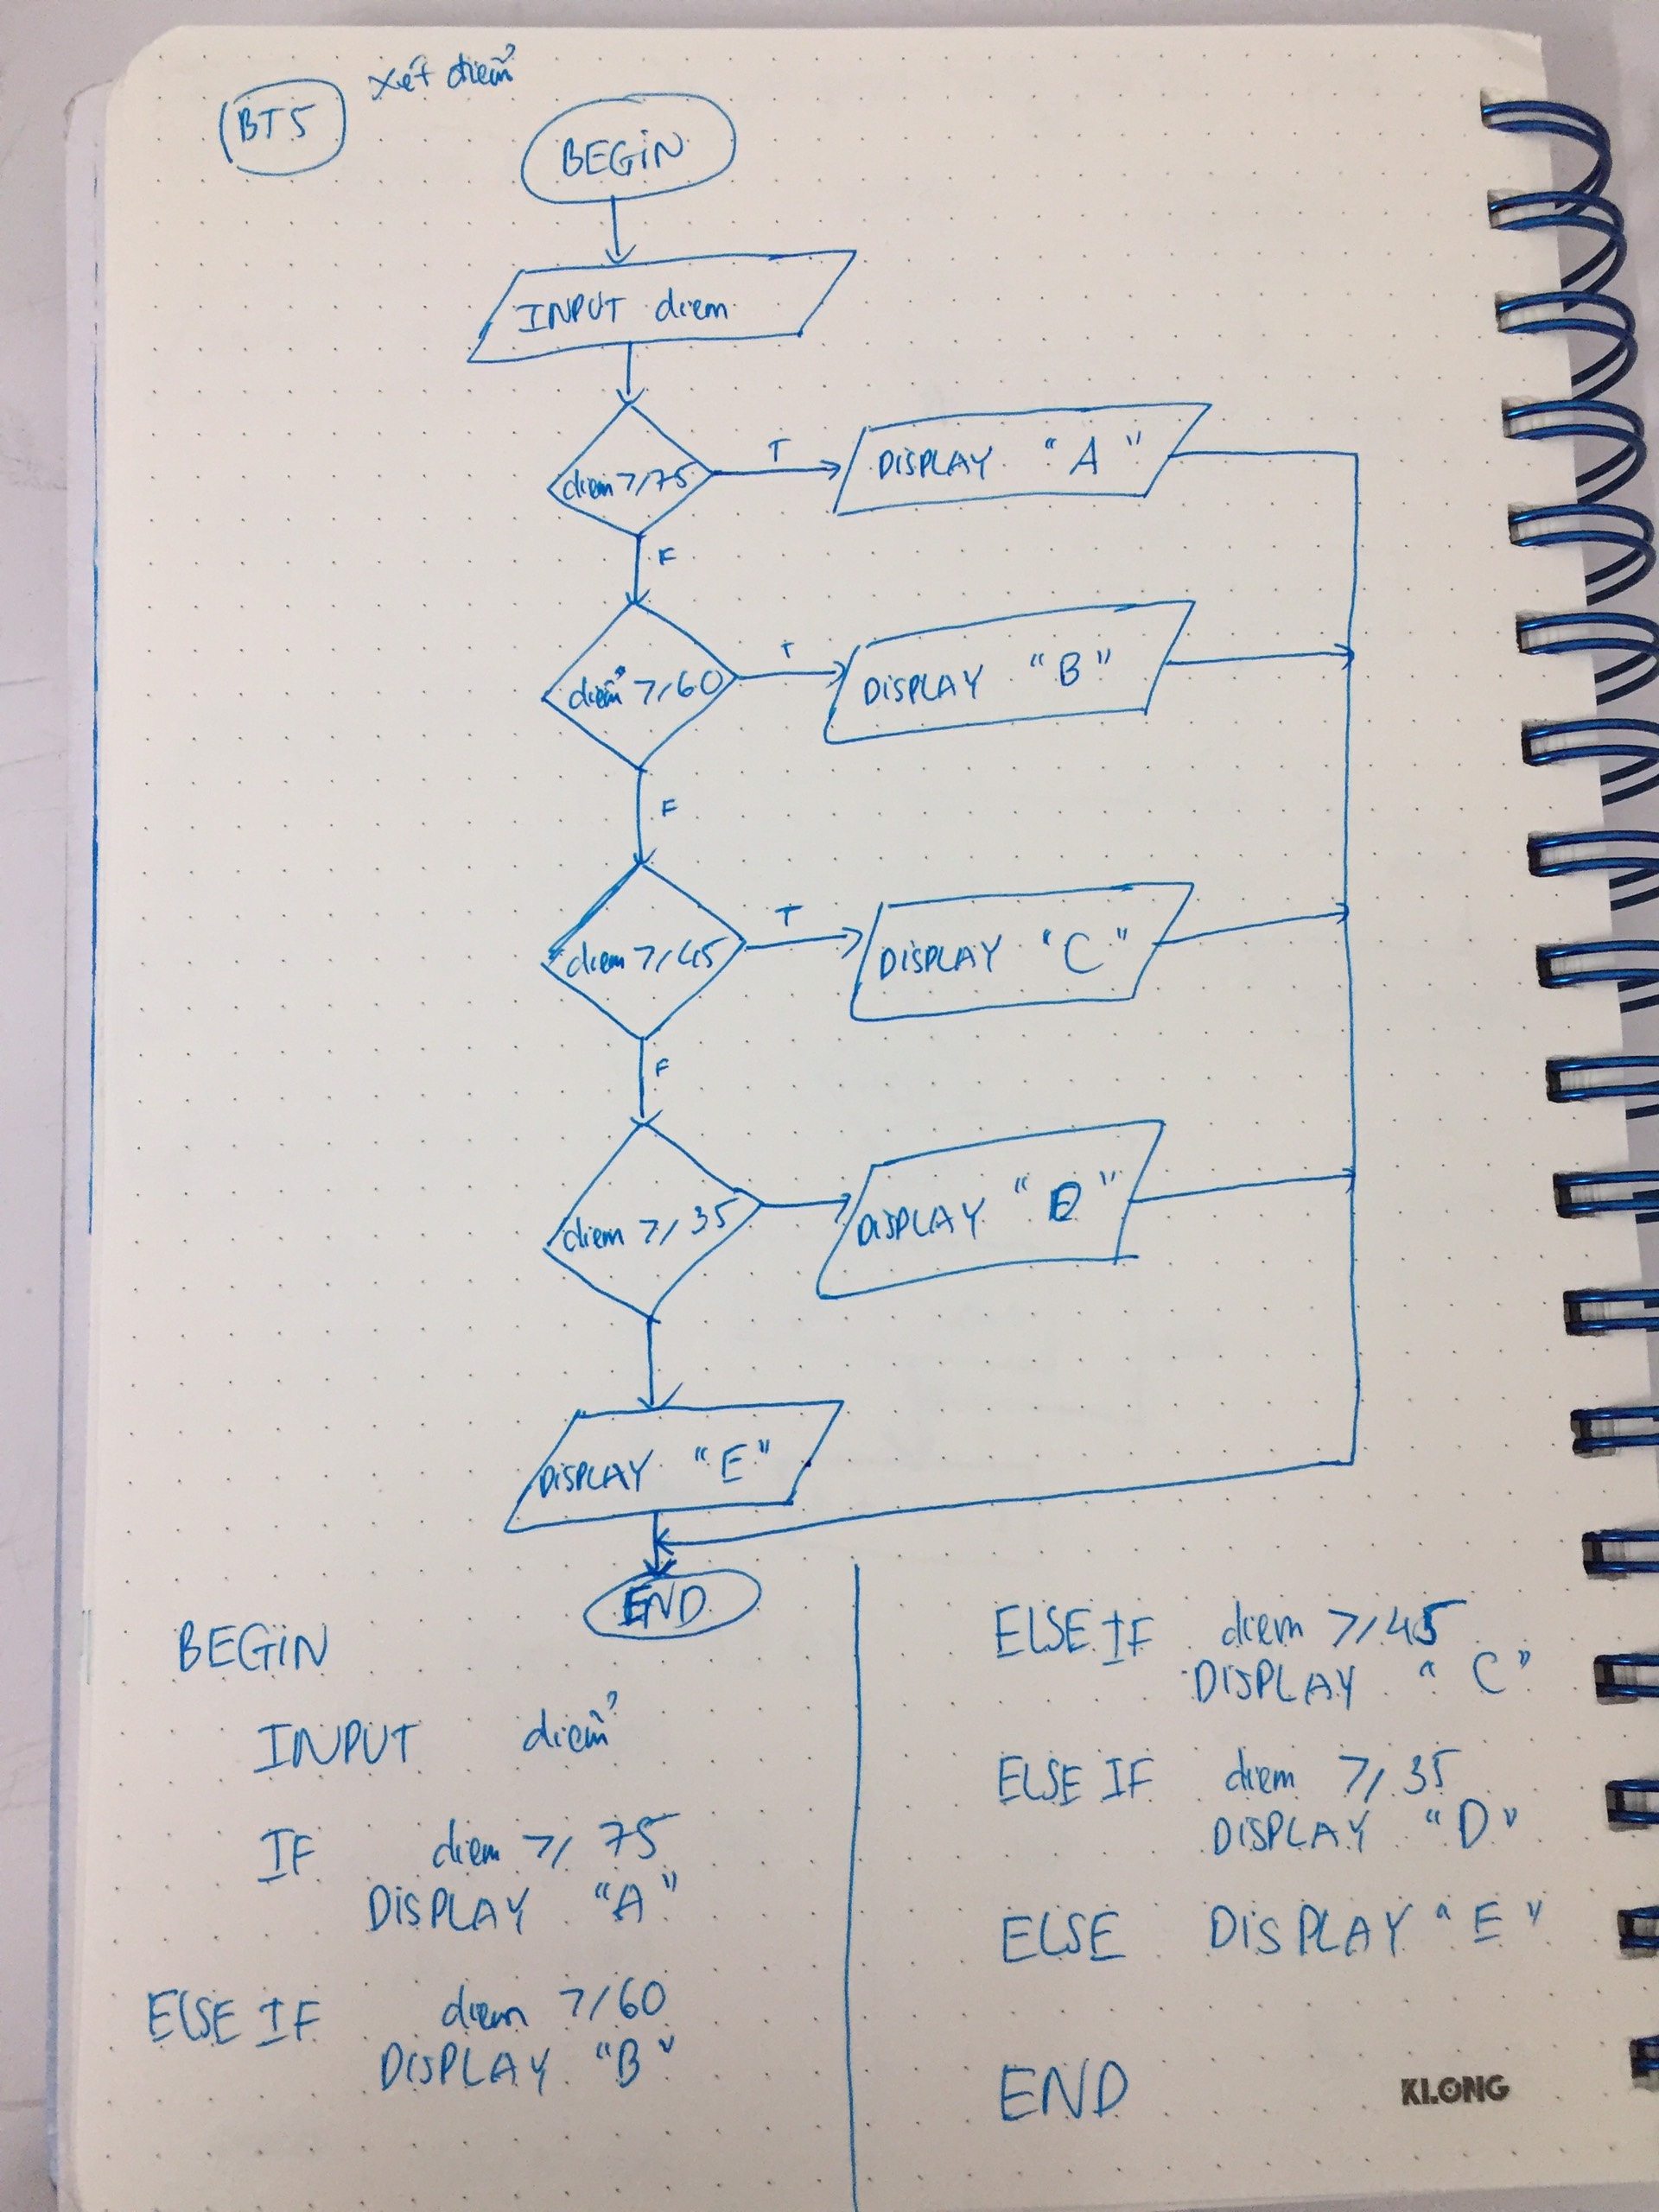 BT5 xét điểm
BEGIN
INPUT diem
diem ≥ 75
T
DISPLAY "A"
F
điểm ≥ 60
T
DISPLAY "B"
F
diem ≥ 45
T
DISPLAY "C"
F
diem ≥ 35
DISPLAY "D"
DISPLAY "E"
END
BEGIN
INPUT điểm
IF diem ≥ 75
DISPLAY "A"
ELSE IF diem ≥ 60
DISPLAY "B"
ELSE IF diem ≥ 45
DISPLAY "C"
ELSE IF diem ≥ 35
DISPLAY "D"
ELSE DISPLAY "E"
END
KLONG